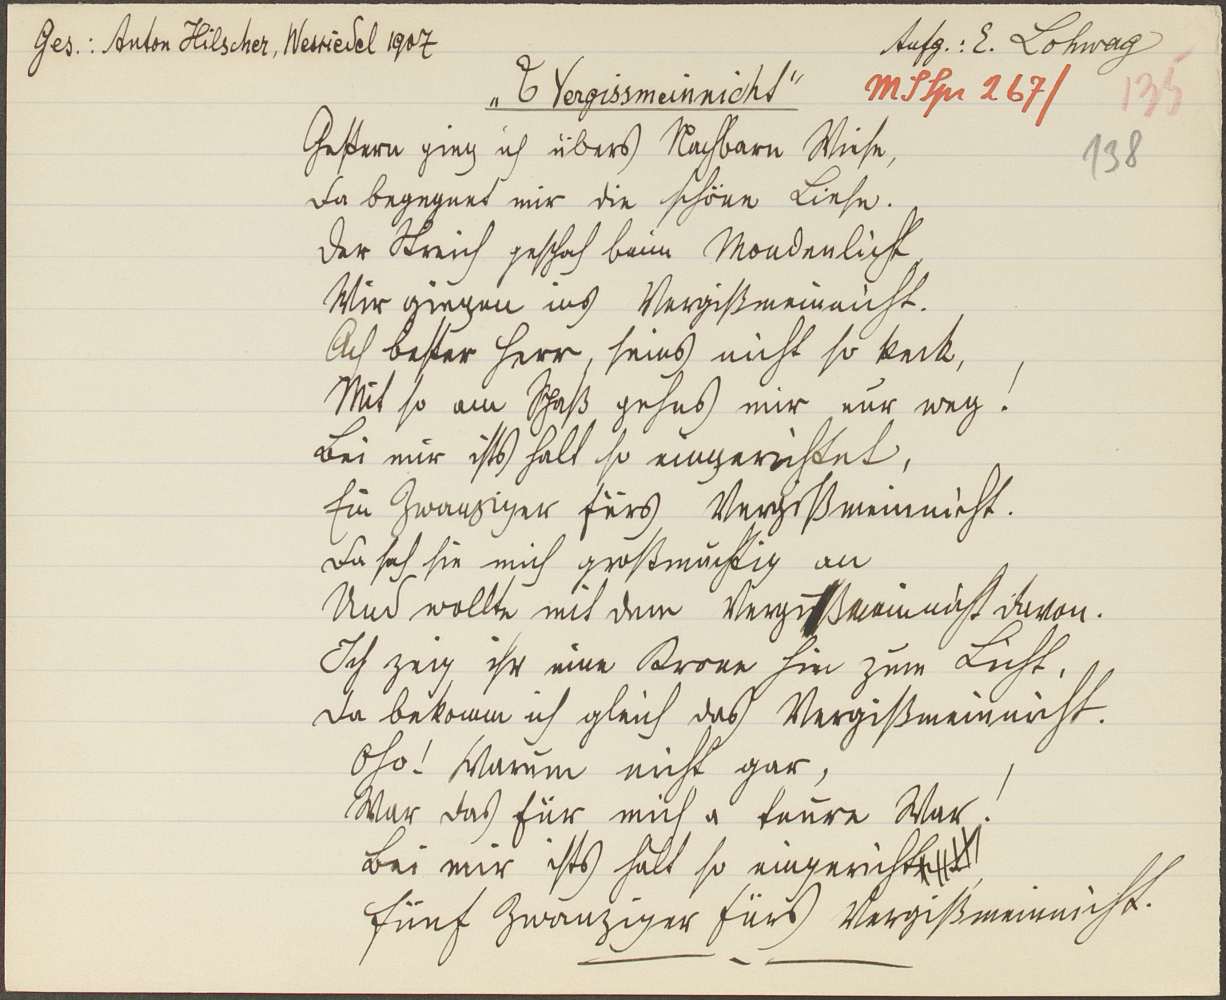 Ges.: Anton Hilscher, Wessiedel 1907
Aufg.: E. Lohwag
„'s Vergissmeinnicht"
135
138
Gestern ging ich übers Nachbarn Wiese,
Da begegnet mir die schöne Liese.
Der Streich geschah beim Mondenlicht,
Wir gingen ins Vergißmeinnicht.
Ach bester Herr, seins nicht so keck,
Mit so am Spaß gehns mir nur weg!
Bei mir ists halt so eingerichtet,
Ein Zwanziger fürs Vergißmeinnicht.
Da sah sie mich großmächtig an
Und wollte mit dem Vergißmeinnicht davon.
Ich zeig ihr eine Krone hin zum Licht,
Da bekomm ich gleich das Vergißmeinnicht.
Oho! Warum nicht gar,
War das für mich a teure War!
Bei mir ists halt so eingericht
Fünf Zwanziger fürs Vergißmeinnicht.